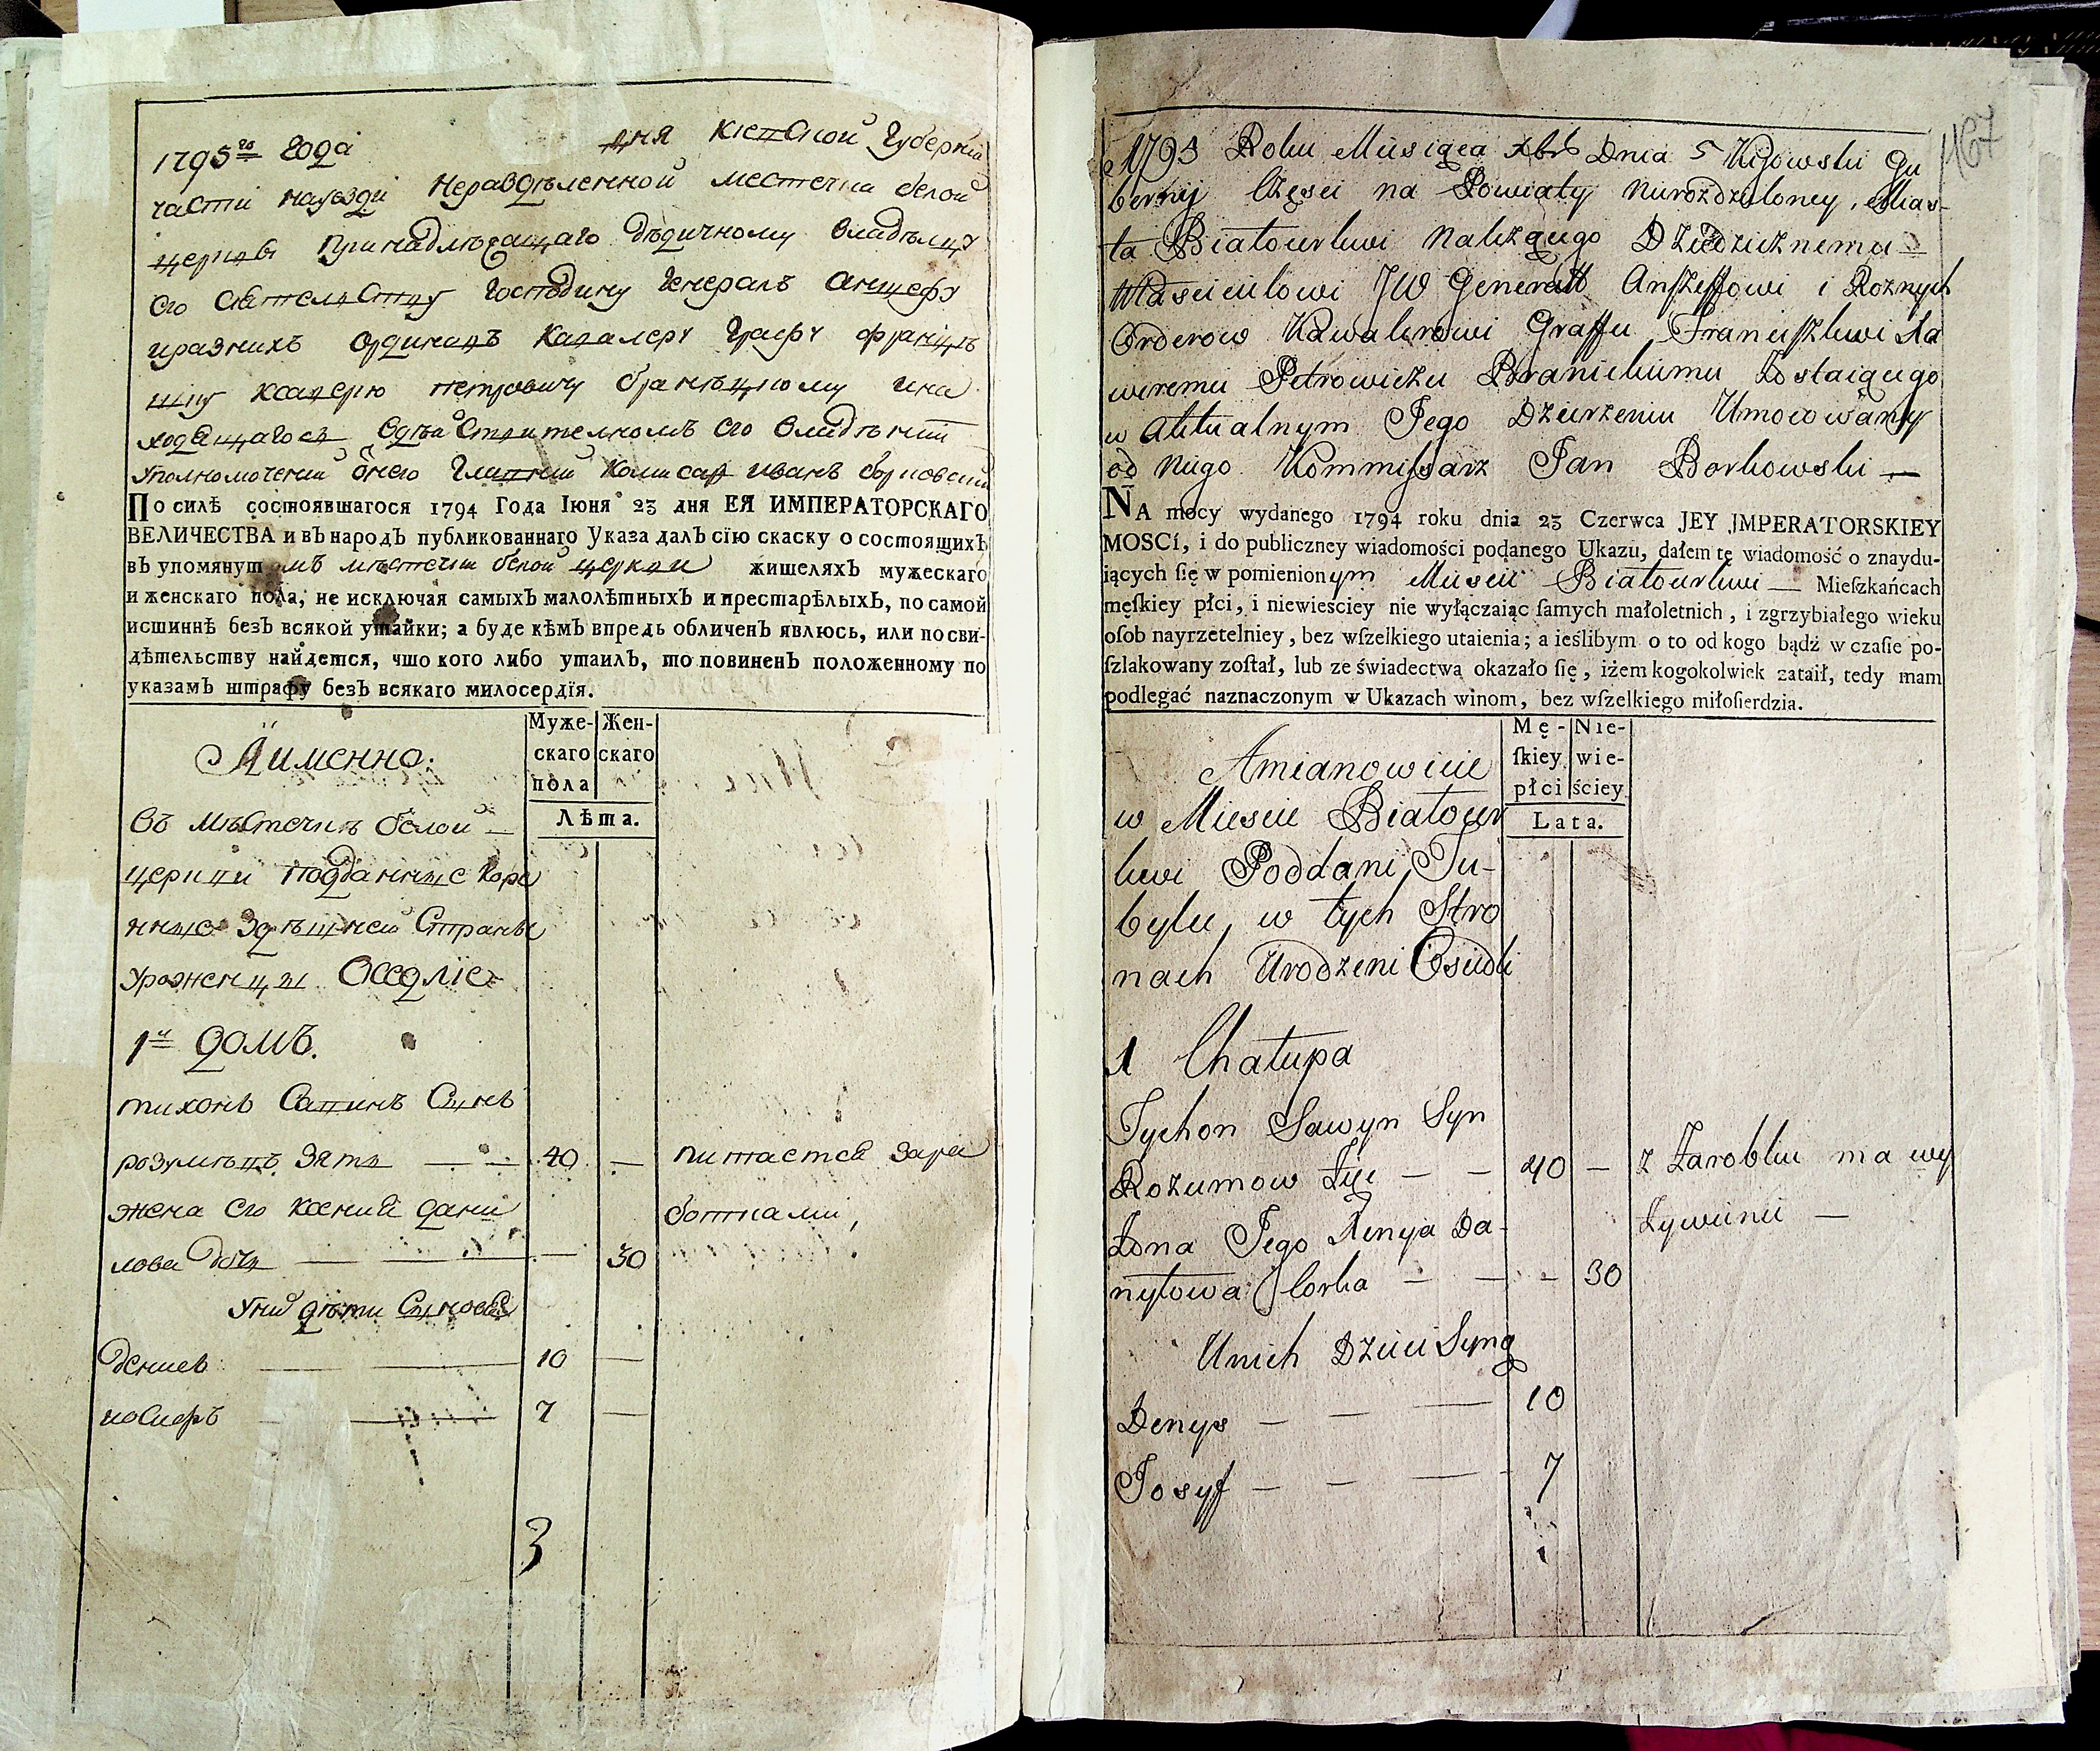 1795го года дня Киевской Губернiи
части науезди неразделенной местечка белой
церкви принадлежащаго дѣдичному владѣлцу
его Сіятелству Господину Генералъ аншефу
иразнихъ ординовъ Кавалеру Графу францѣ
ишку ксаверию петровичу браницкому ина
ходящагося вдѣйствителномъ его владѣнии
уполномочений Онего Главний Комисар иванъ борковский
По силѣ состоявшагося 1794 Года Іюня 23 дня ЕЯ ИМПЕРАТОРСКАГО
ВЕЛИЧЕСТВА и въ народъ публикованнаго Указа далъ сїю скаску о состоящихъ
въ упомянутомъ мѣстечки белой церкви жителяхъ мужескаго
и женскаго пола, не исключая самыхъ малолѣтныхъ и престарѣлыхъ, по самой
истиннѣ безъ всякой утайки; а буде кѣмъ впредь обличенъ явлюсь, или по сви-
дѣтельству найдется, что кого либо утаилъ, то повиненъ положенному по
указамъ штрафу безъ всякаго милосердїя.
Аименно:
Муже- Жен-
скаго скаго
пола
Лѣта.
въ мѣстечкѣ белой
церкви подданные коре
нные здѣшней Страны
уроженцы Оседлiе
1й домъ.
тихонъ Савинъ Сынъ
розумѣвъ зять — — 40 — питается зара
жена его ксения дани ботками,
лова дочь — — — 30
уних дѣти Сыновя
денисъ — — 10 —
иосифъ — — 7 —
3
167
1795 Roku Miesiąca Xbra Dnia 5 Kijowski Gu
bernij Częsci na Powiaty nierozdzieloney, Mias-
ta Białocerkwi Należącego Dziedzicznemu
Włascicielowi JW Generałł Anszeffowi i Roznych
Orderow Kawalerowi Graffu Franciszkwi Xa
weremu Petrowiczu Branickiemu Zostaiącego
w aktualnym Jego Dzierzeniu Umocowany
od niego Kommissarz Jan Borkowski —
NA mocy wydanego 1794 roku dnia 23 Czerwca JEY JMPERATORSKIEY
MOSCí, i do publiczney wiadomości podanego Ukazu, dałem tę wiadomość o znaydu-
iących ſię w pomienionym Miescie Białocerkwi — Mieſzkańcach
męſkiey płci, i niewieściey nie wyłączaiąc ſamych małoletnich, i zgrzybiałego wieku
oſob nayrzetelniey, bez wſzelkiego utaienia; a ieślibym o to od kogo bądź w czaſie po-
ſzlakowany zoſtał, lub ze świadectwa okazało ſię, iżem kogokolwiek zataił, tedy mam
podlegać naznaczonym w Ukazach winom, bez wſzelkiego miłoſierdzia.
Mę- Nie-
ſkiey wie-
płci ściey
Lata.
Amianowicie
w Miescie Białocer
kwi Poddani, Tu-
bylce, w tych Stro
nach Urodzeni Osiedli
1 Chałupa
Tychon Sawyn Syn
Rozumow Zięć — — 40 — z Zarobku ma wy
Zona Jego Xenya Da- żywienie —
nyłowa Corka — — — 30
Unich Dzieci Syny
Denys — — — 10
Josyf — — — 7